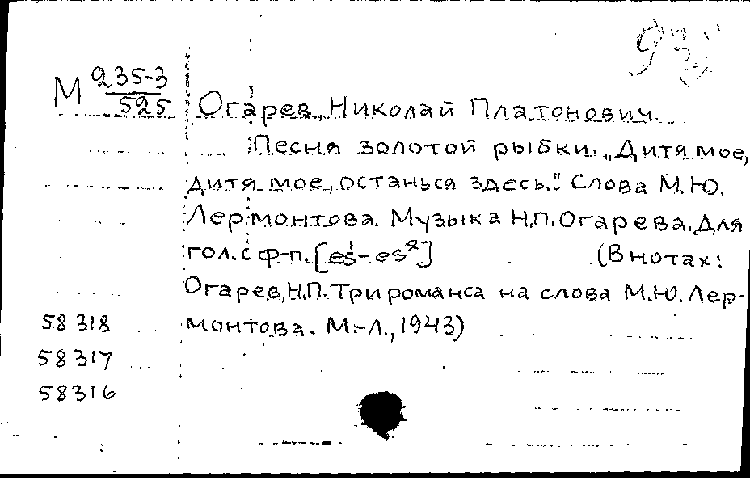 М 235-3
525
Огарев, Николай Платонович.
Песня золотой рыбки. „Дитя мое,
дитя мое, останься здесь." Слова М.Ю.
Лермонтова. Музыка Н.П. Огарева. Для
гол. с ф-п. [es¹-es²] (В нотах:
Огарев, Н.П. Три романса на слова М.Ю. Лер-
монтова. М.-Л., 1943)
58318
58317
58316